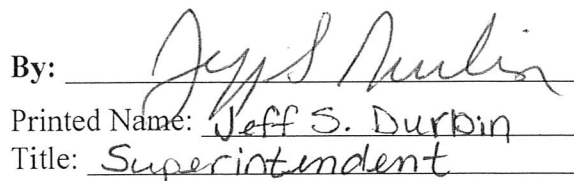 By: Jeff S Durbin
Printed Name: Jeff S. Durbin
Title: Superintendent